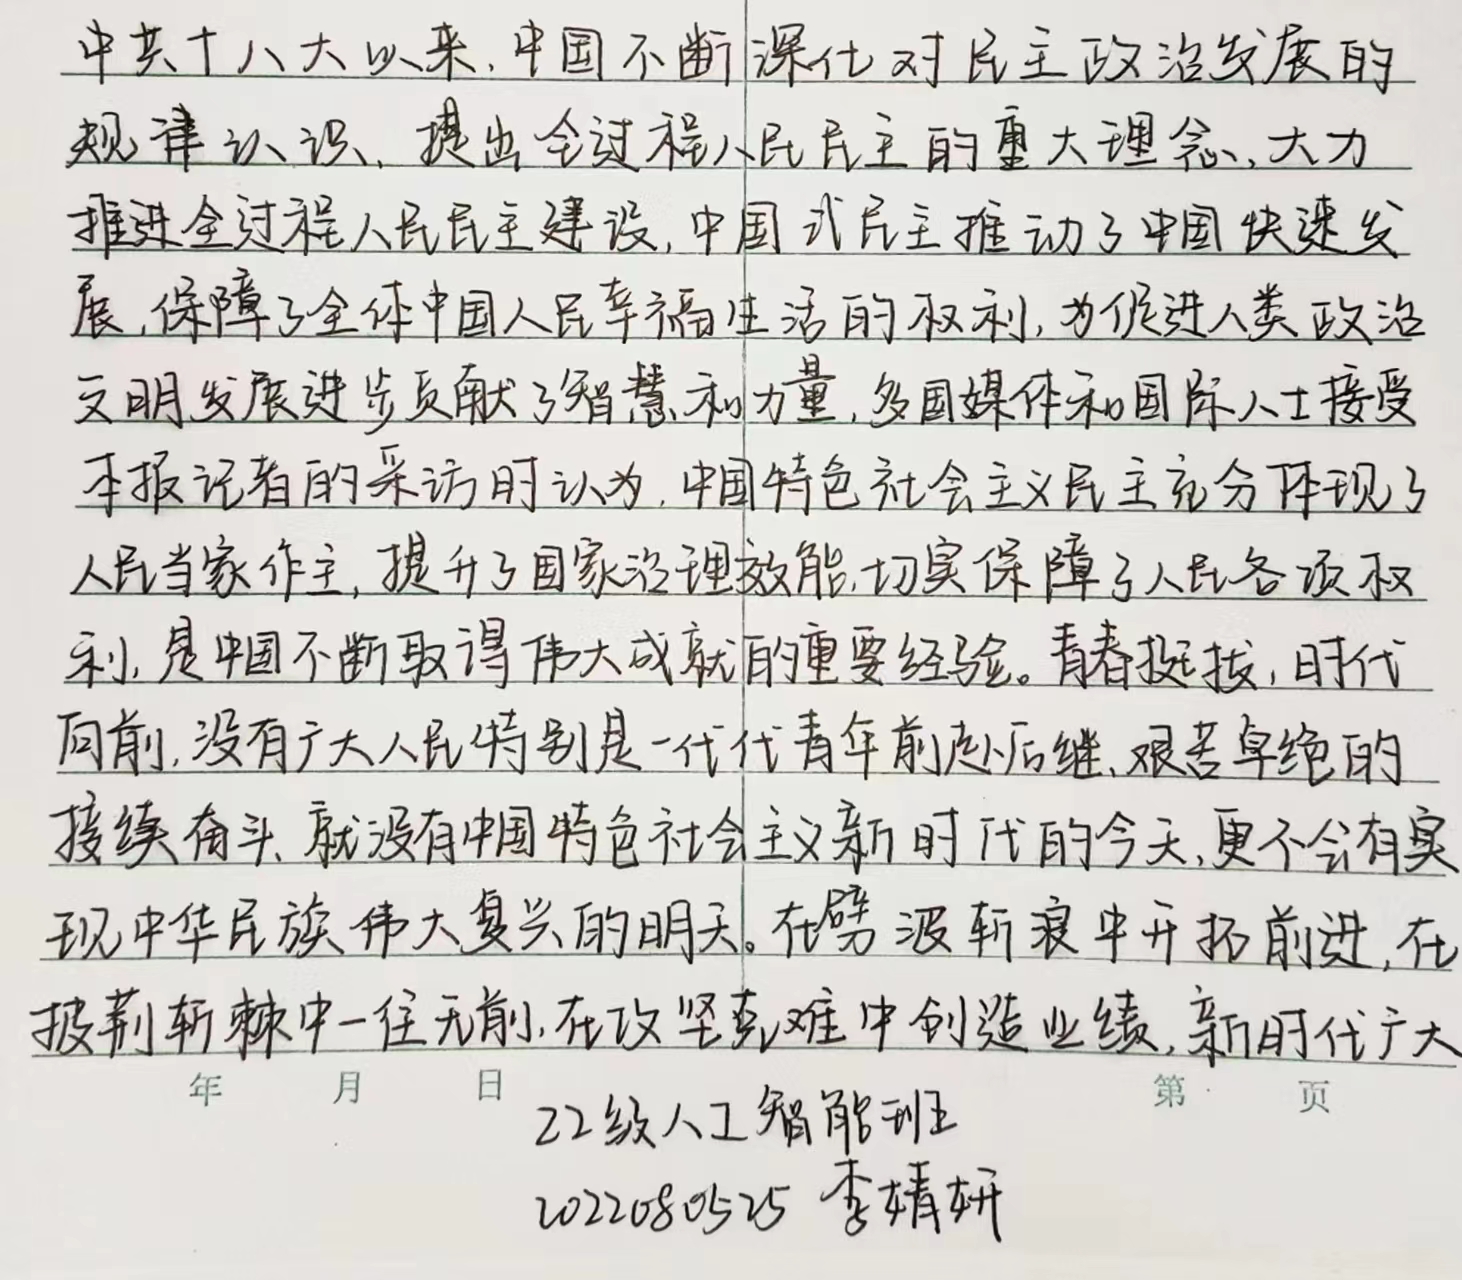 中共十八大以来,中国不断深化对民主政治发展的
规律认识,提出全过程人民民主的重大理念,大力
推进全过程人民民主建设,中国式民主推动了中国快速发
展,保障了全体中国人民幸福生活的权利,为促进人类政治
文明发展进步贡献了智慧和力量,多国媒体和国际人士接受
本报记者的采访时认为,中国特色社会主义民主充分体现了
人民当家作主,提升了国家治理效能,切实保障了人民各项权
利,是中国不断取得伟大成就的重要经验。青春挺拔,时代
向前,没有广大人民特别是一代代青年前赴后继、艰苦卓绝的
接续奋斗、就没有中国特色社会主义新时代的今天,更不会有实
现中华民族伟大复兴的明天。在劈波斩浪中开拓前进,在
披荆斩棘中一往无前,在攻坚克难中创造业绩,新时代广大
年 月 日 第 页
22级人工智能班
2022080525 李婧妍